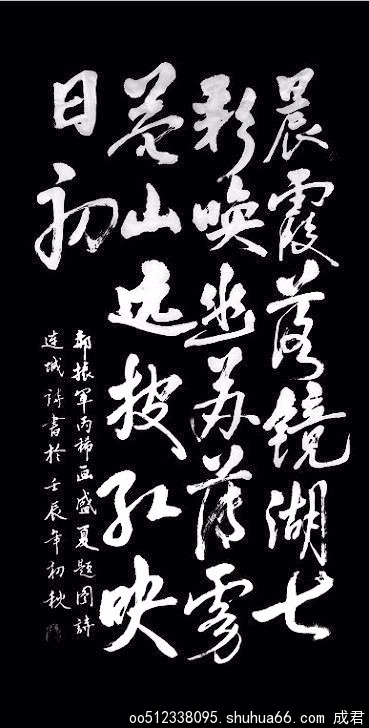 晨霞落镜湖七
彩唤幽苏薄雾
山远披红映
日初
振军丙稀画盛夏题图诗
连城诗书於壬辰年初秋
oo512338095.shuhua66.com 成君